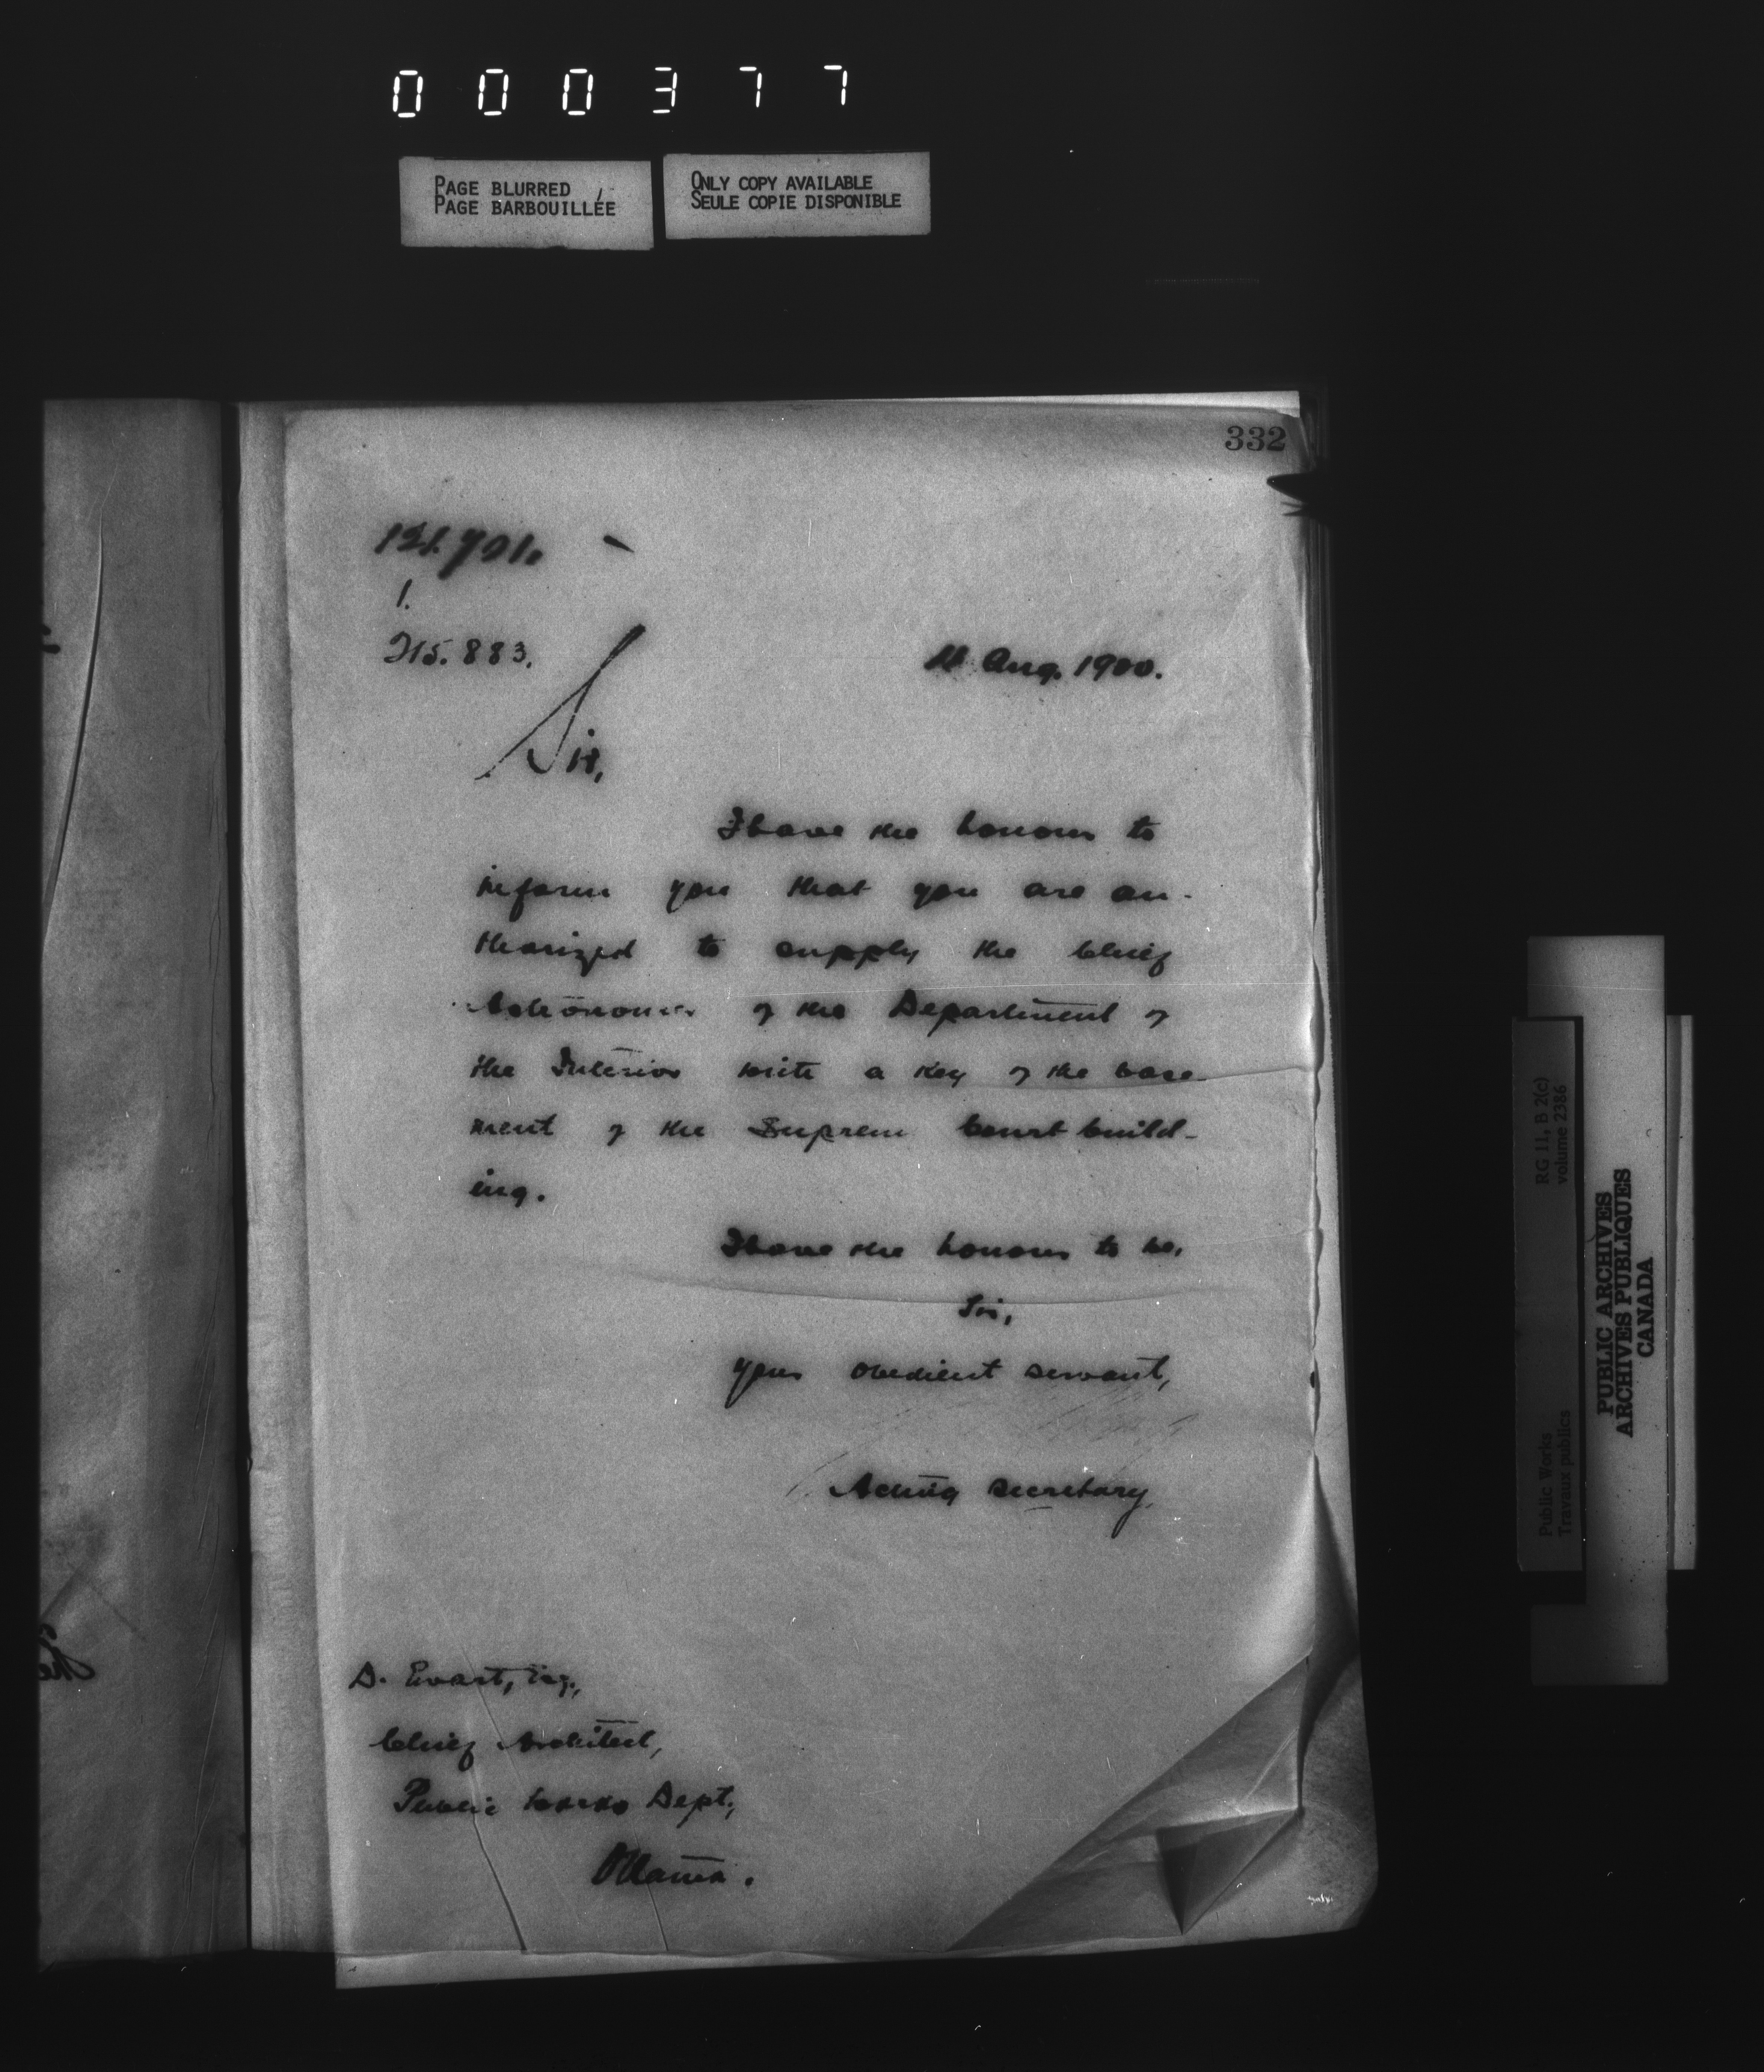 000377
PAGE BLURRED
PAGE BARBOUILLÉE
ONLY COPY AVAILABLE
SEULE COPIE DISPONIBLE
332
1.
215.883.
Aug. 1900.
Sir,
I have the honour to
inform you that you are au-
thorized to supply the Chief
Astronomer of the Department of
the Interior with a key of the base-
ment of the Supreme Court build-
ing.
I have the honour to be,
Sir,
your obedient servant,
Acting Secretary
D. Ewart, Esq.,
Chief Architect,
Public Works Dept.,
Ottawa.
RG 11, B 2(c)
volume 2386
Public Works
Travaux publics
PUBLIC ARCHIVES
ARCHIVES PUBLIQUES
CANADA